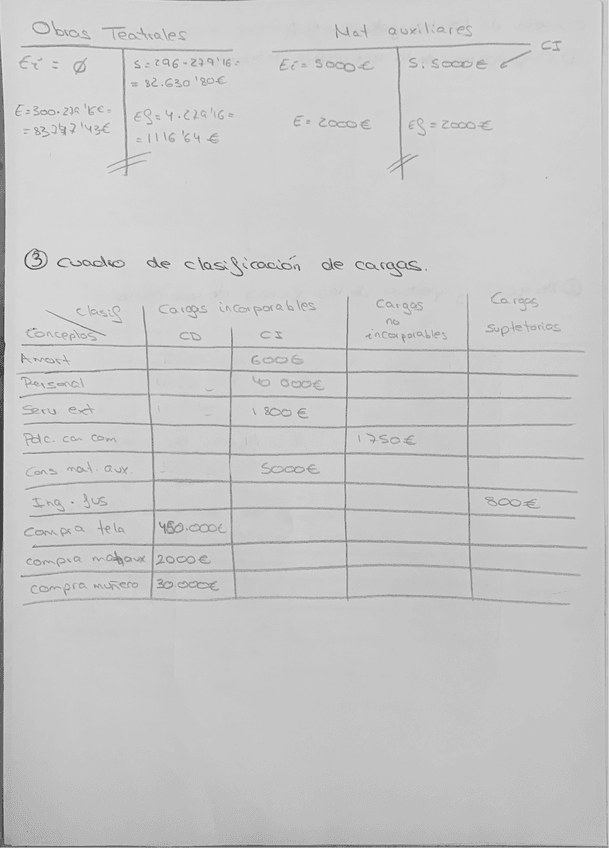 Obras Teatrales
Nat auxiliares
Ei = ∅
S = 296 · 279'16 =
= 82.630'80€
Ei = 5000€
S = 5000€
CI
E = 300 · 279'16€ =
= 83.747'43€
Ef = 4 · 279'16 =
= 1116'64 €
E = 2000€
Ef = 2000€
③ Cuadro de clasificación de cargas.
Clasif
Conceptos
Cargas incorporables
Cargas
no
incorporables
Cargas
supletorias
CD
CI
Amort
600€
Personal
40 000€
Serv ext
1 800€
Pdc. car com
1750€
Cons mat. aux.
5000€
Ing. fus
800€
Compra tela
450.000€
compra mat aux
2000€
compra muñeco
30.000€